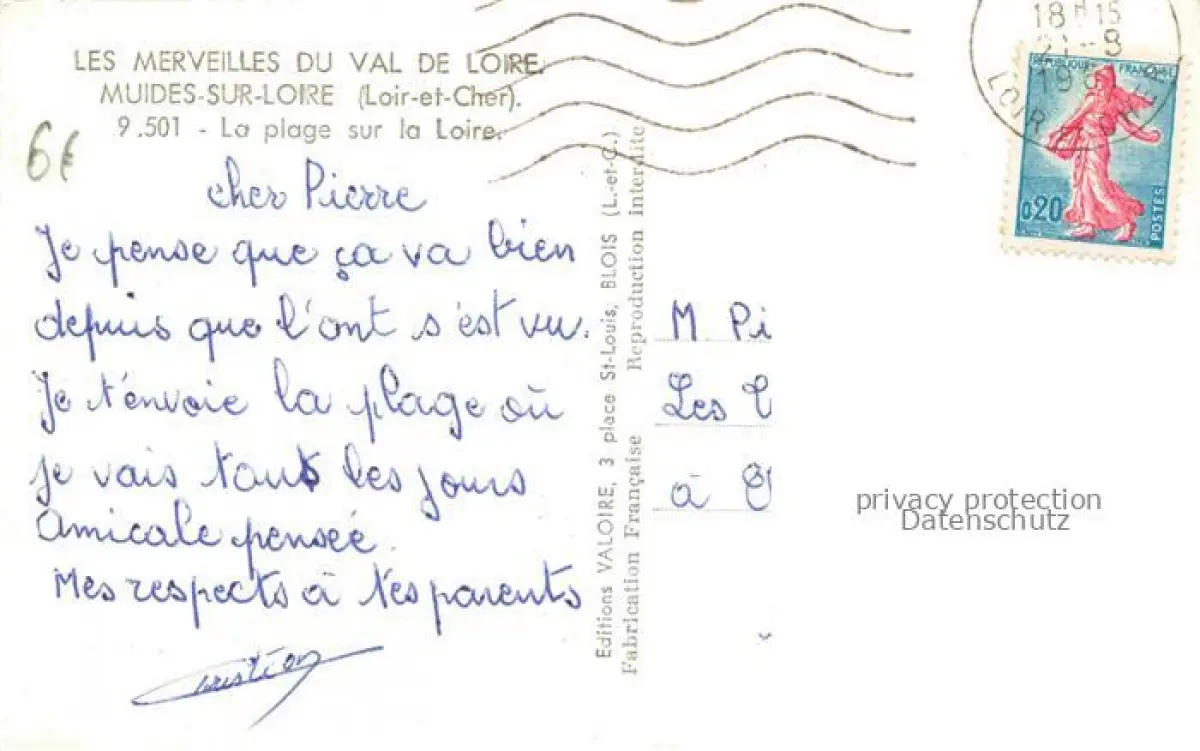 LES MERVEILLES DU VAL DE LOIRE.
MUIDES-SUR-LOIRE (Loir-et-Cher).
9.501 - La plage sur la Loire.
6€
cher Pierre
Je pense que ça va bien
depuis que l'ont s'est vu.
Je t'envoie la plage où
je vais tous les jours
Amicale pensée.
Mes respects à t'es parents
Cristian
Editions VALOIRE, 3 place St-Louis, BLOIS (L.-et-C.)
Fabrication Française Reproduction interdite
18H15
21-8
196
LOIR
RÉPUBLIQUE FRANÇAISE
0,20
POSTES
M Pi
Les
à
privacy protection
Datenschutz